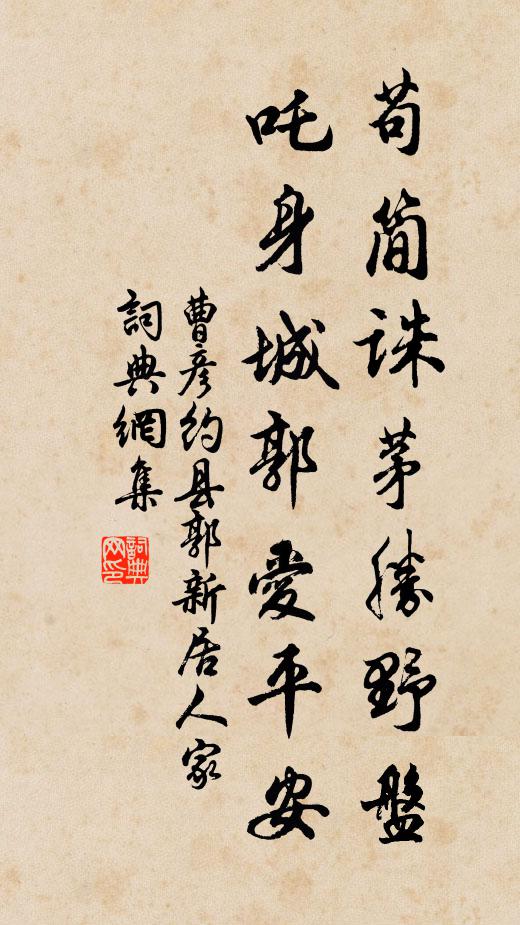 苟簡誅茅勝野盤
吒身城郭愛平安
曹彦約县郭新居人家
詞典網集
詞典網印